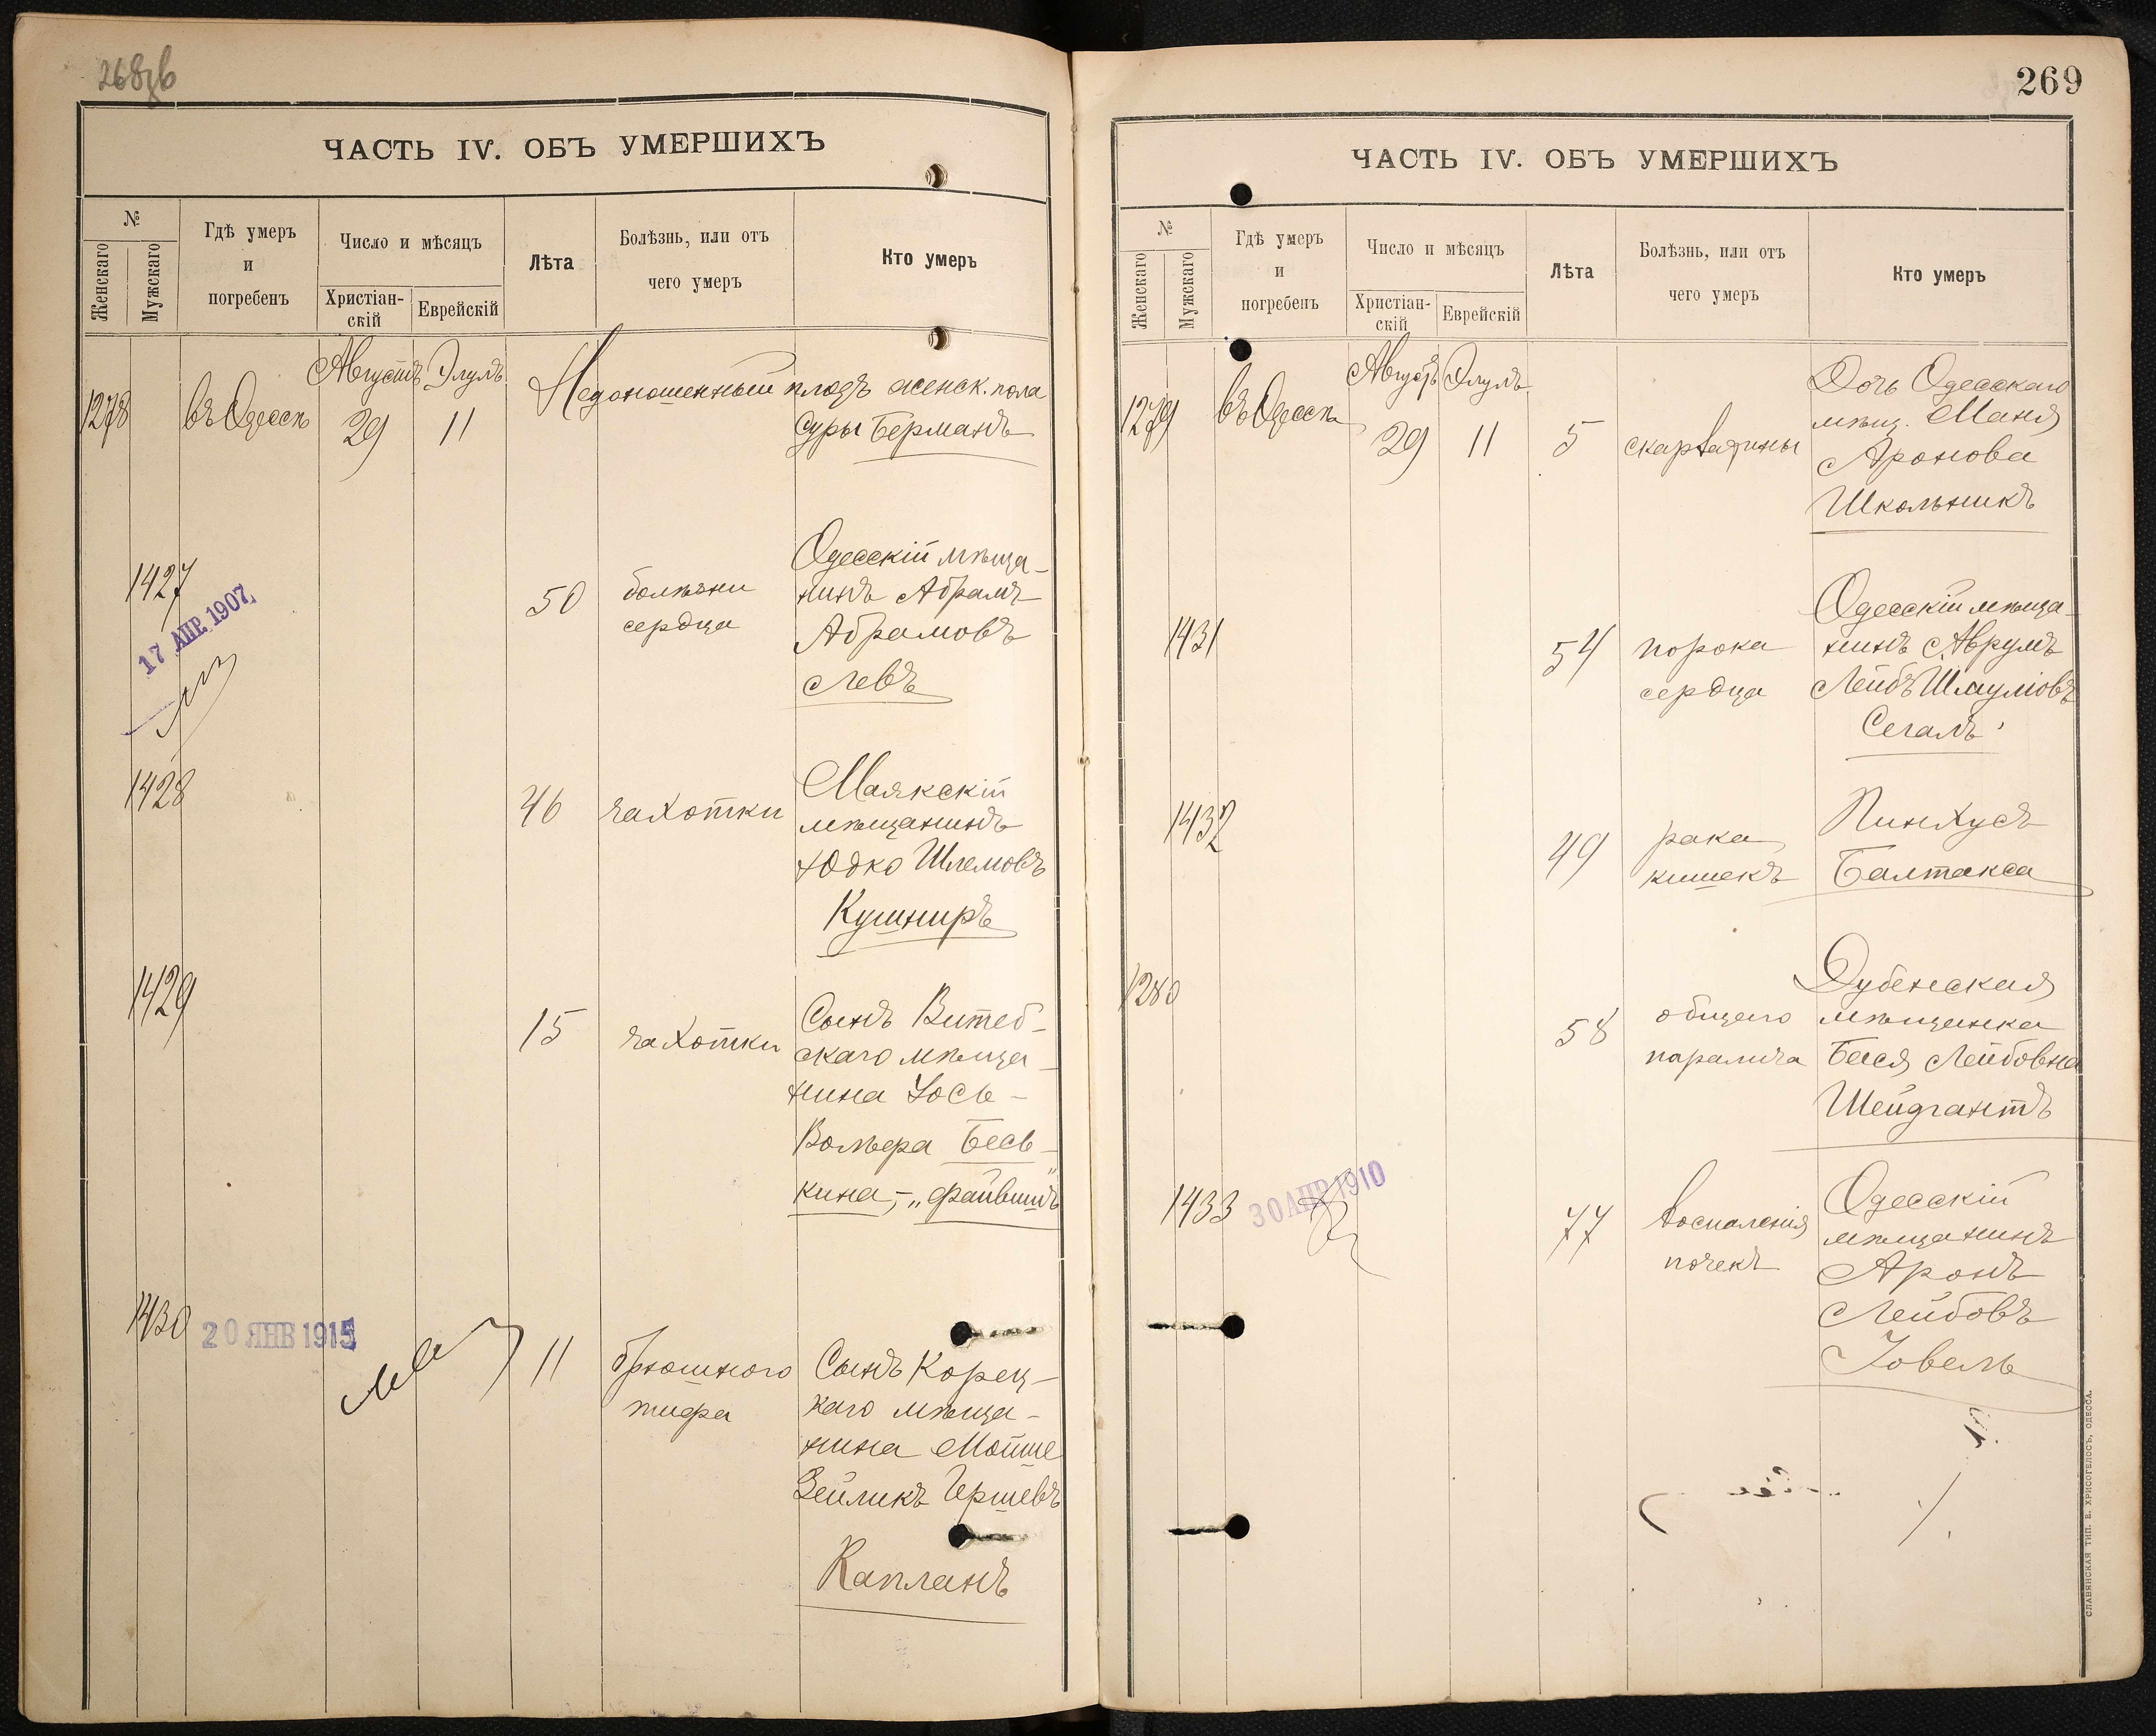 268 зв
ЧАСТЬ IV. ОБЪ УМЕРШИХЪ
№
Женскаго
Мужскаго
Гдѣ умеръ
и
погребенъ
Число и мѣсяцъ
Христіан-
скій
Еврейскій
Лѣта
Болѣзнь, или отъ
чего умеръ
Кто умеръ
1278
въ Одессѣ
Августъ
29
Элулъ
11
Недоношенный плодъ женск. пола
Суры Берманъ
1427
17 АПР. 1907
50
болѣзни
сердца
Одесскій мѣща-
нинъ Абрамъ
Абрамовъ
Левъ
1428
46
чахотки
Маякскій
мѣщанинъ
Юдко Шлемовъ
Кушниръ
1429
15
чахотки
Сынъ Витеб-
скаго мѣща-
нина Іось-
Вольера Бесь-
кина, - „Файвишъ"
1430
20 ЯНВ 1915
11
брюшного
тифа
Сынъ Корец-
каго мѣща-
нина Мойше
Зейликъ Гершевъ
Капланъ
269
ЧАСТЬ IV. ОБЪ УМЕРШИХЪ
№
Женскаго
Мужскаго
Гдѣ умеръ
и
погребенъ
Число и мѣсяцъ
Христіан-
скій
Еврейскій
Лѣта
Болѣзнь, или отъ
чего умеръ
Кто умеръ
1279
въ Одессѣ
Августъ
29
Элулъ
11
5
скарлатины
Дочь Одесскаго
мѣщ. Маня
Аронова
Школьникъ
1431
54
порока
сердца
Одесскій мѣща-
нинъ Аврумъ
Лейбъ Шмуліовъ
Сегалъ
1432
49
рака
кишекъ
Пинхусъ
Балтакса
1280
58
общаго
паралича
Дубенская
мѣщанка
Бася Лейбовна
Шейдгантъ
1433
30 АПР 1910
77
воспаленія
почекъ
Одесскій
мѣщанинъ
Аронъ
Лейбовъ
Іовель
СЛАВЯНСКАЯ ТИП. Е. ХРИСОГЕЛОСЪ, ОДЕССА.